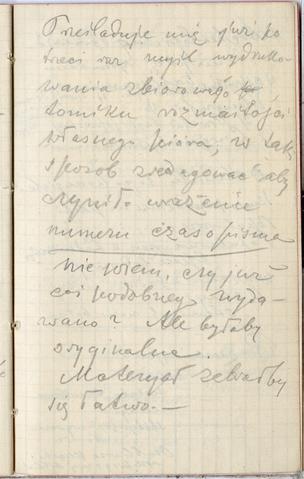 Prześladuje mię już po
trzeci raz myśl wydruko-
wania zbiorowego
tomiku rozmaitości
własnego pióra, w taki
sposób zredagować aby
czyniło wrażenie
numeru czasopisma
nie wiem, czy już
coś podobnego wyda-
wano? Ale byłaby
oryginalna.
Materyał zebrałby
się łatwo.—